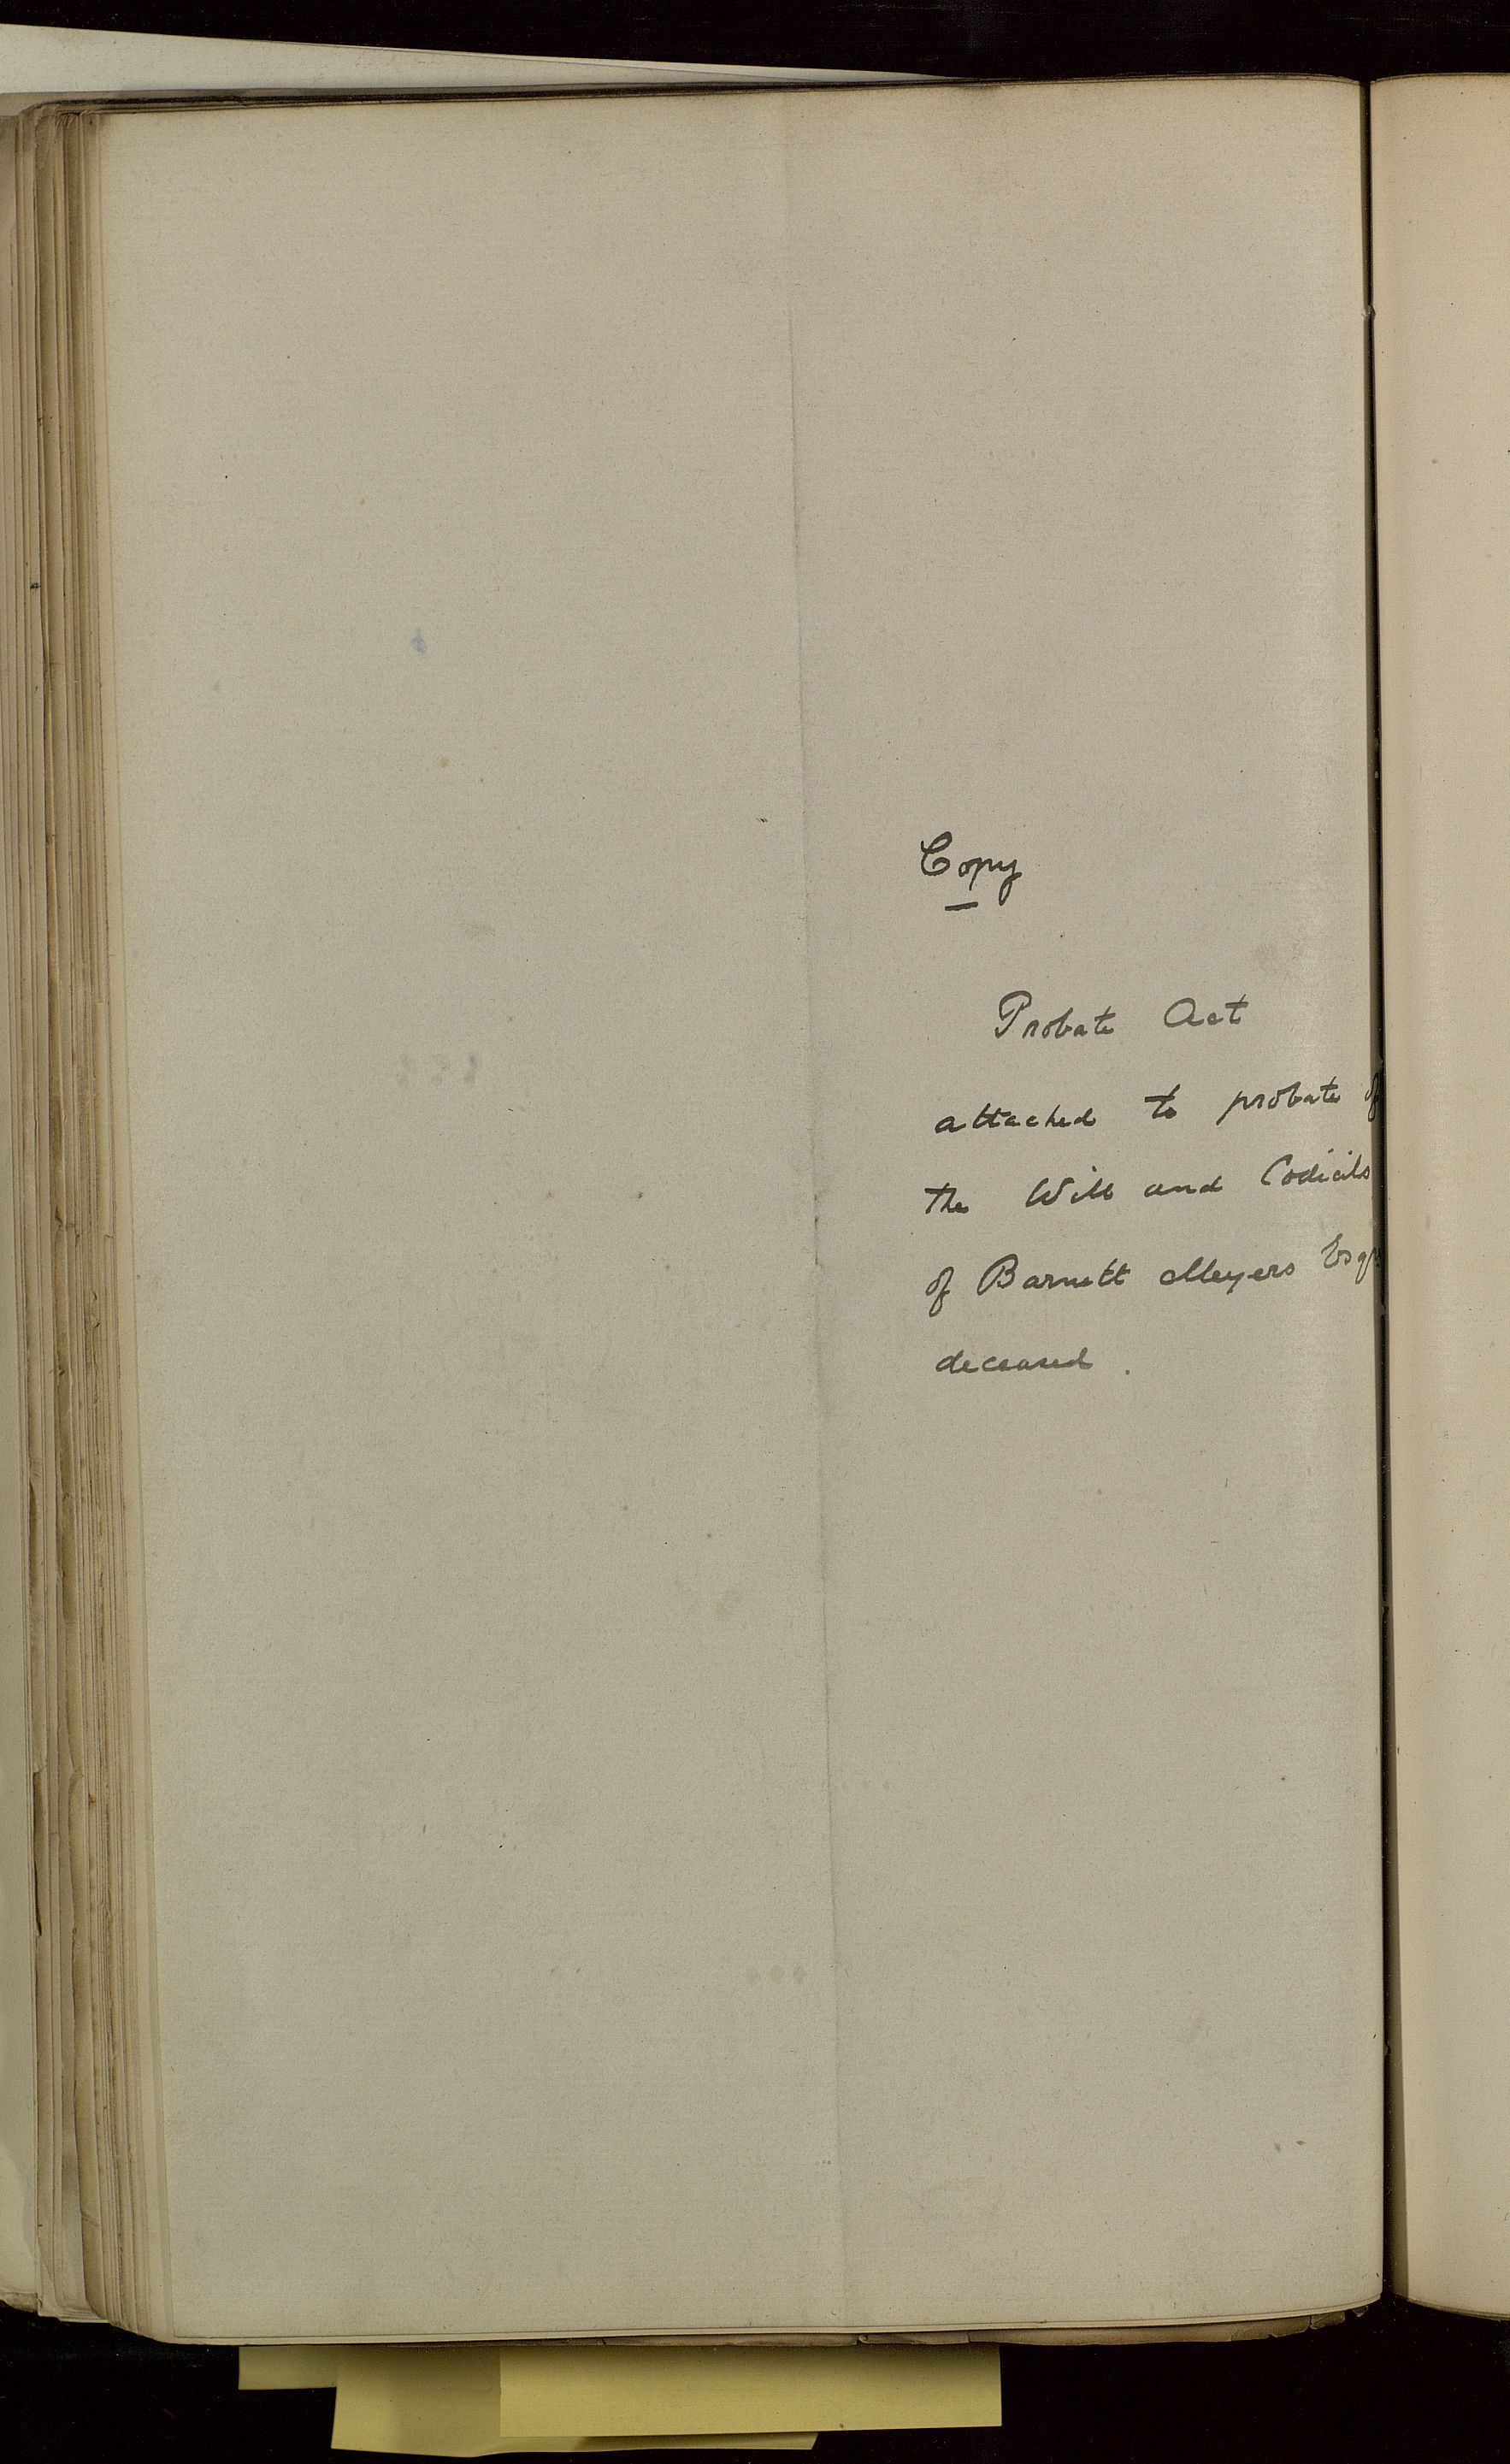 Copy
Probate Act
attached to probate of
the Will and Codicils
of Barnett Meyers Esqr
deceased.